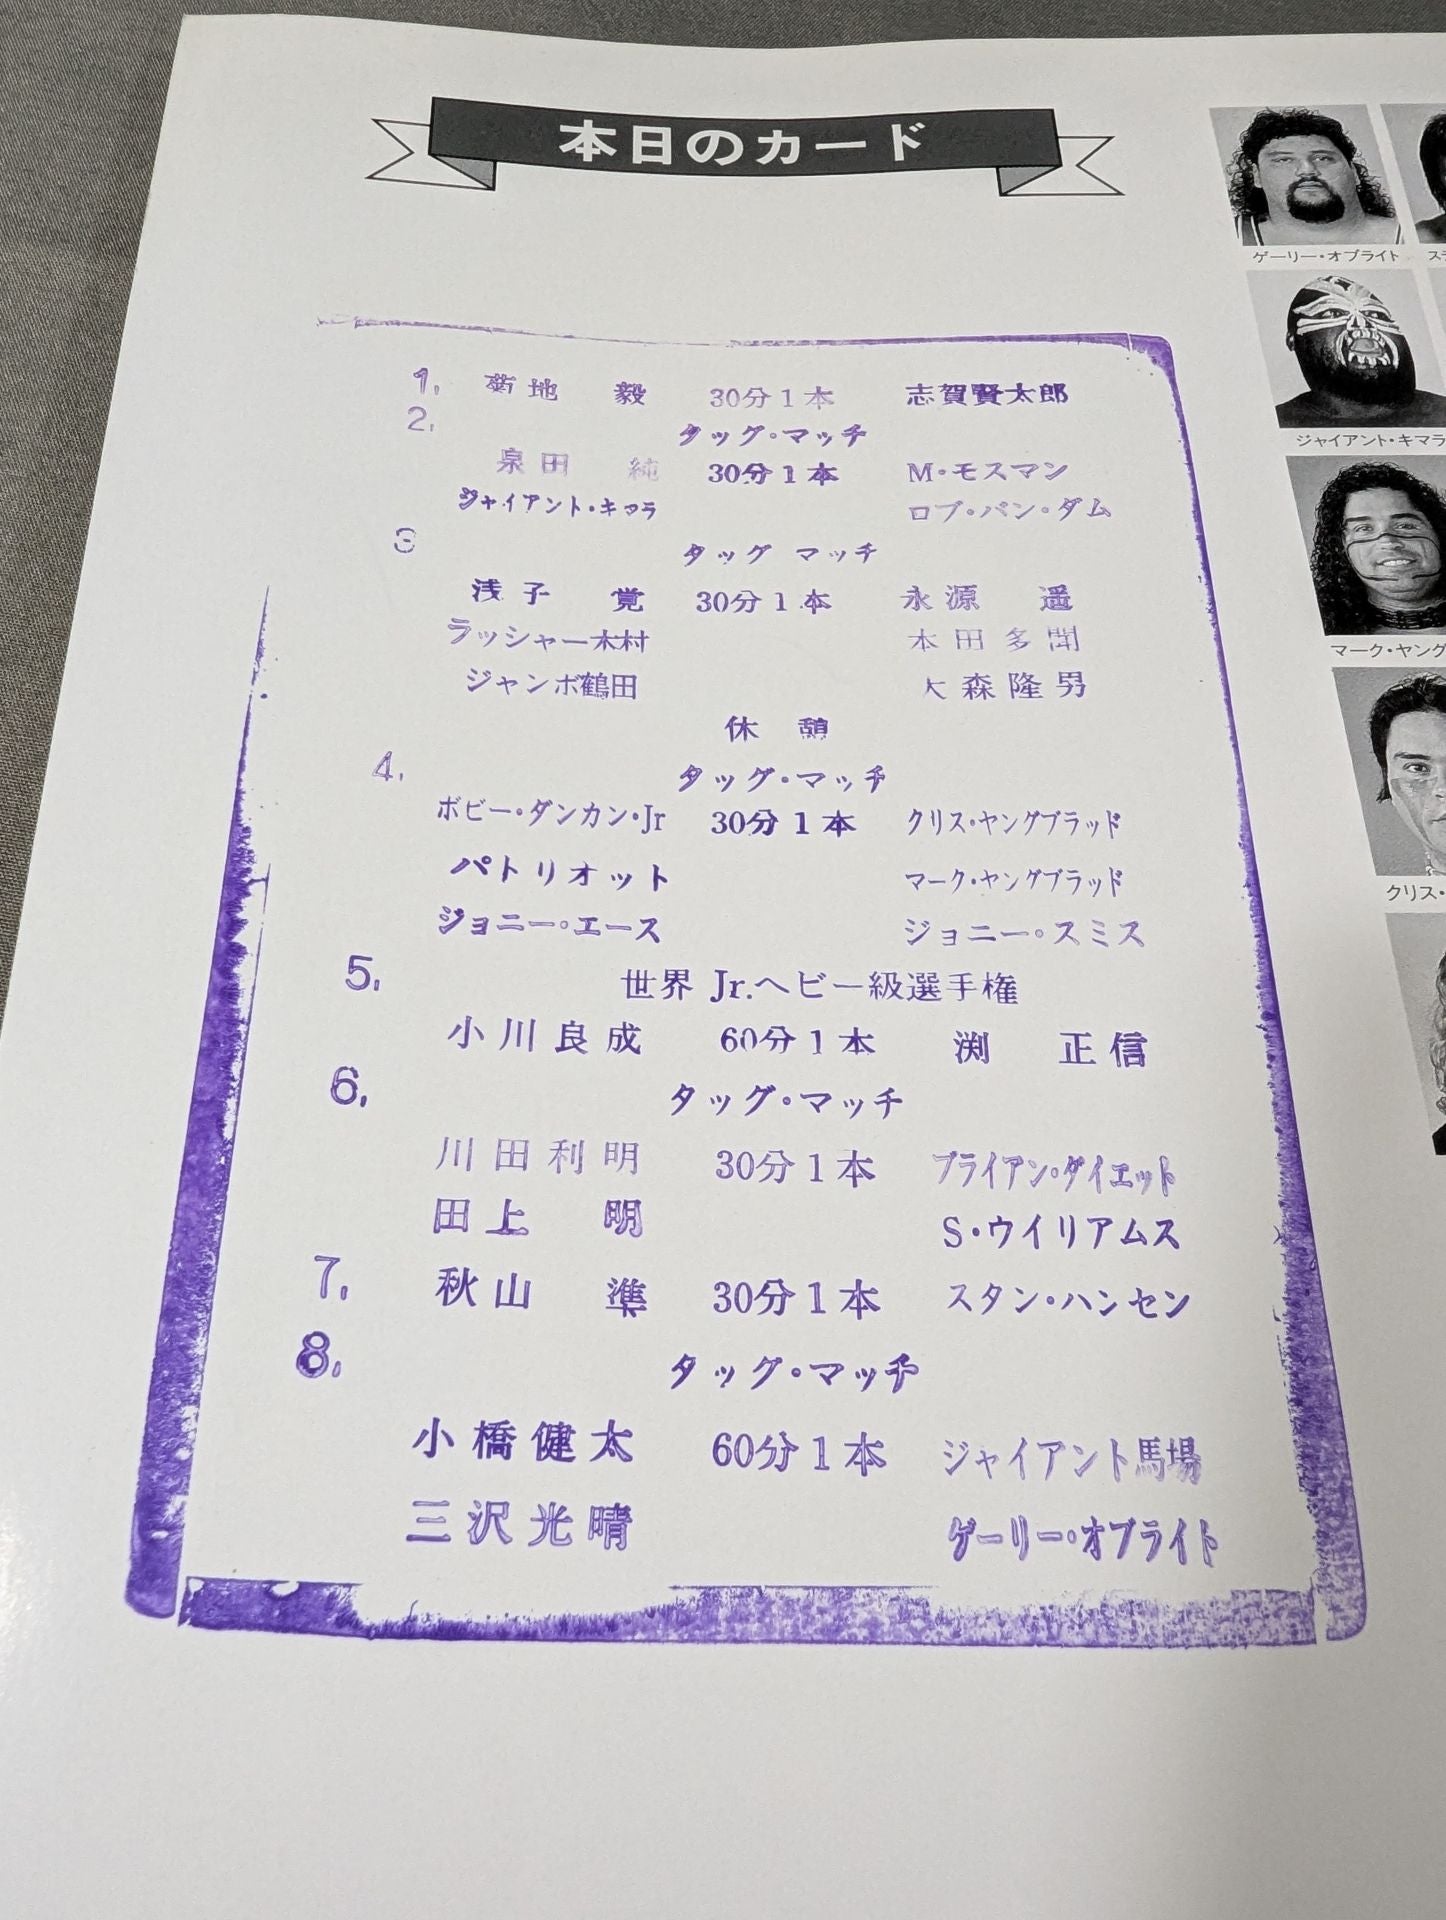 本日のカード
1. 菊地 毅 30分1本 志賀賢太郎
2. タッグ・マッチ
泉田 純 30分1本 M・モスマン
ジャイアント・キマラ ロブ・バン・ダム
3 タッグ マッチ
浅子 覚 30分1本 永源 遥
ラッシャー木村 本田多聞
ジャンボ鶴田 大森隆男
休憩
4. タッグ・マッチ
ボビー・ダンカン・Jr 30分1本 クリス・ヤングブラッド
パトリオット マーク・ヤングブラッド
ジョニー・エース ジョニー・スミス
5. 世界 Jr.ヘビー級選手権
小川良成 60分1本 渕 正信
6. タッグ・マッチ
川田利明 30分1本 ブライアン・ダイエット
田上 明 S・ウイリアムス
7. 秋山 準 30分1本 スタン・ハンセン
8. タッグ・マッチ
小橋健太 60分1本 ジャイアント馬場
三沢光晴 ゲーリー・オブライト
ゲーリー・オブライト
ス
ジャイアント・キマラ
マーク・ヤング
クリス・